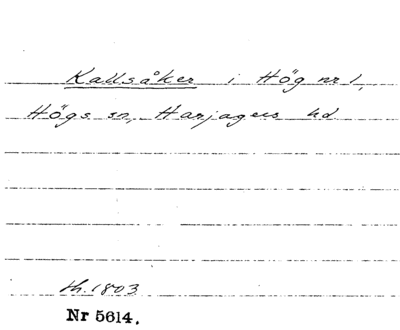 Kallsåker i Hög nr 1,
Högs sn, Harjagers hd
th. 1803
Nr 5614.